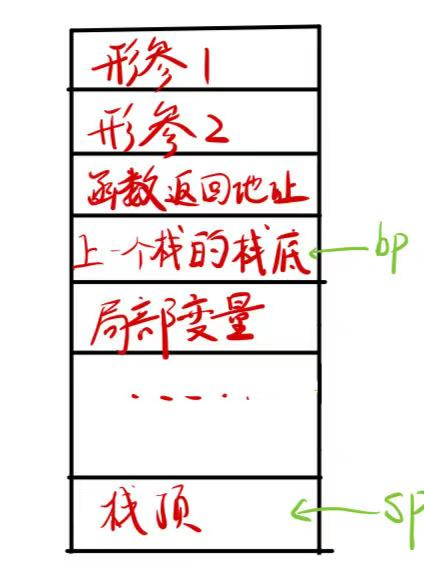 形参1
形参2
函数返回地址
上一个栈的栈底
bp
局部变量
......
栈顶
sp